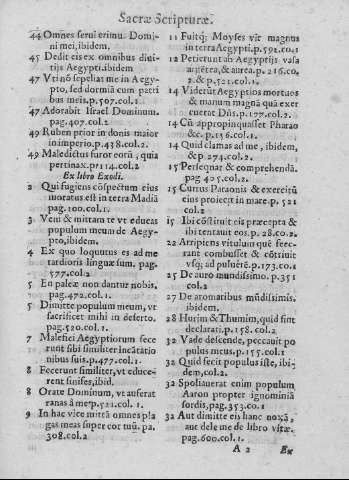 Sacræ Scripturæ.
44 Omnes serui erimu. Domi-
ni mei, ibidem.
45 Dedit eis ex omnibus diui-
tijs Aegypti. ibidem
47 Vt nō sepelias me in Aegy-
pto, sed dormiā cum patri
bus meis. p. 507. col. 1
47 Adorabit Israel Dominum.
pag. 407. col. 1
49 Ruben prior in donis maior
in imperio. p. 438. col. 2.
49 Maledictus furor eorū, quia
pertinax. p. 114. col. 2
Ex libro Exodi.
2 Qui fugiens cōspectum eius
moratus est in terra Madiā
pag. 100. col. 1.
3 Veni & mittam te vt educas
populum meum de Aegy-
pto, ibidem.
4 Ex quo loquutus es ad me
tardioris linguæ sum. pag.
577. col. 2
5 En paleæ non dantur nobis.
pag. 472. col. 1.
5 Dimitte populum meum, vt
sacrificet mihi in deserto.
pag. 520. col. 1.
7 Malefici Aegyptiorum fece
runt sibi similiter incātatio
nibus suis. p. 477. col. 1.
8 Fecerunt similiter, vt educe-
rent sinifes, ibid.
8 Orate Dominum, vt auferat
ranas à me. p. 521. col. 1.
9 In hac vice mittā omnes pla
gas meas super cor tuū. pa.
308. col. 2
11 Fuitq; Moyses vir magnus
in terra Aegypti. p. 592. co. 1
12 Petierunt ab Aegyptijs vasa
argētea, & aurea. p. 216. co.
2. & p. 521. col. 1.
14 Viderūt Aegyptios mortuos
& manum magnā quā exer
cuerat Dñs. p. 177. col. 2.
14 Cū appropinquasset Pharao
&c. p. 156. col. 1.
14 Quid clamas ad me, ibidem,
& p. 274. col. 2.
15 Persequar & comprehendā.
pag 405. col. 2.
15 Currus Paraonis & exercitū
eius proiecit in mare. p. 521
col. 2
15 Ibi cōstituit eis præcepta &
ibi tentauit eos. p. 28. co. 2.
22 Arripiens vitulum quē fece-
rant combusset & cōtriuit
vsq; ad puluerē. p. 173. co. 1
25 De auro mundissimo. p. 351
col. 2
27 De aromaribus mūdissimis.
ibidem.
28 Hurim & Thumim, quid sint
declarati. p. 158. col. 2
32 Vade descende, peccauit po
pulus tuus. p. 155. col. 1
32 Quid fecit populus iste, ibi-
dem, col. 2.
32 Spoliauerat enim populum
Aaron propter ignominiā
sordis, pag. 353. co. 1
32 Aut dimitte eis hanc noxā,
aut dele me de libro vitæ.
pag. 600. col. 1.
A 2 Ex